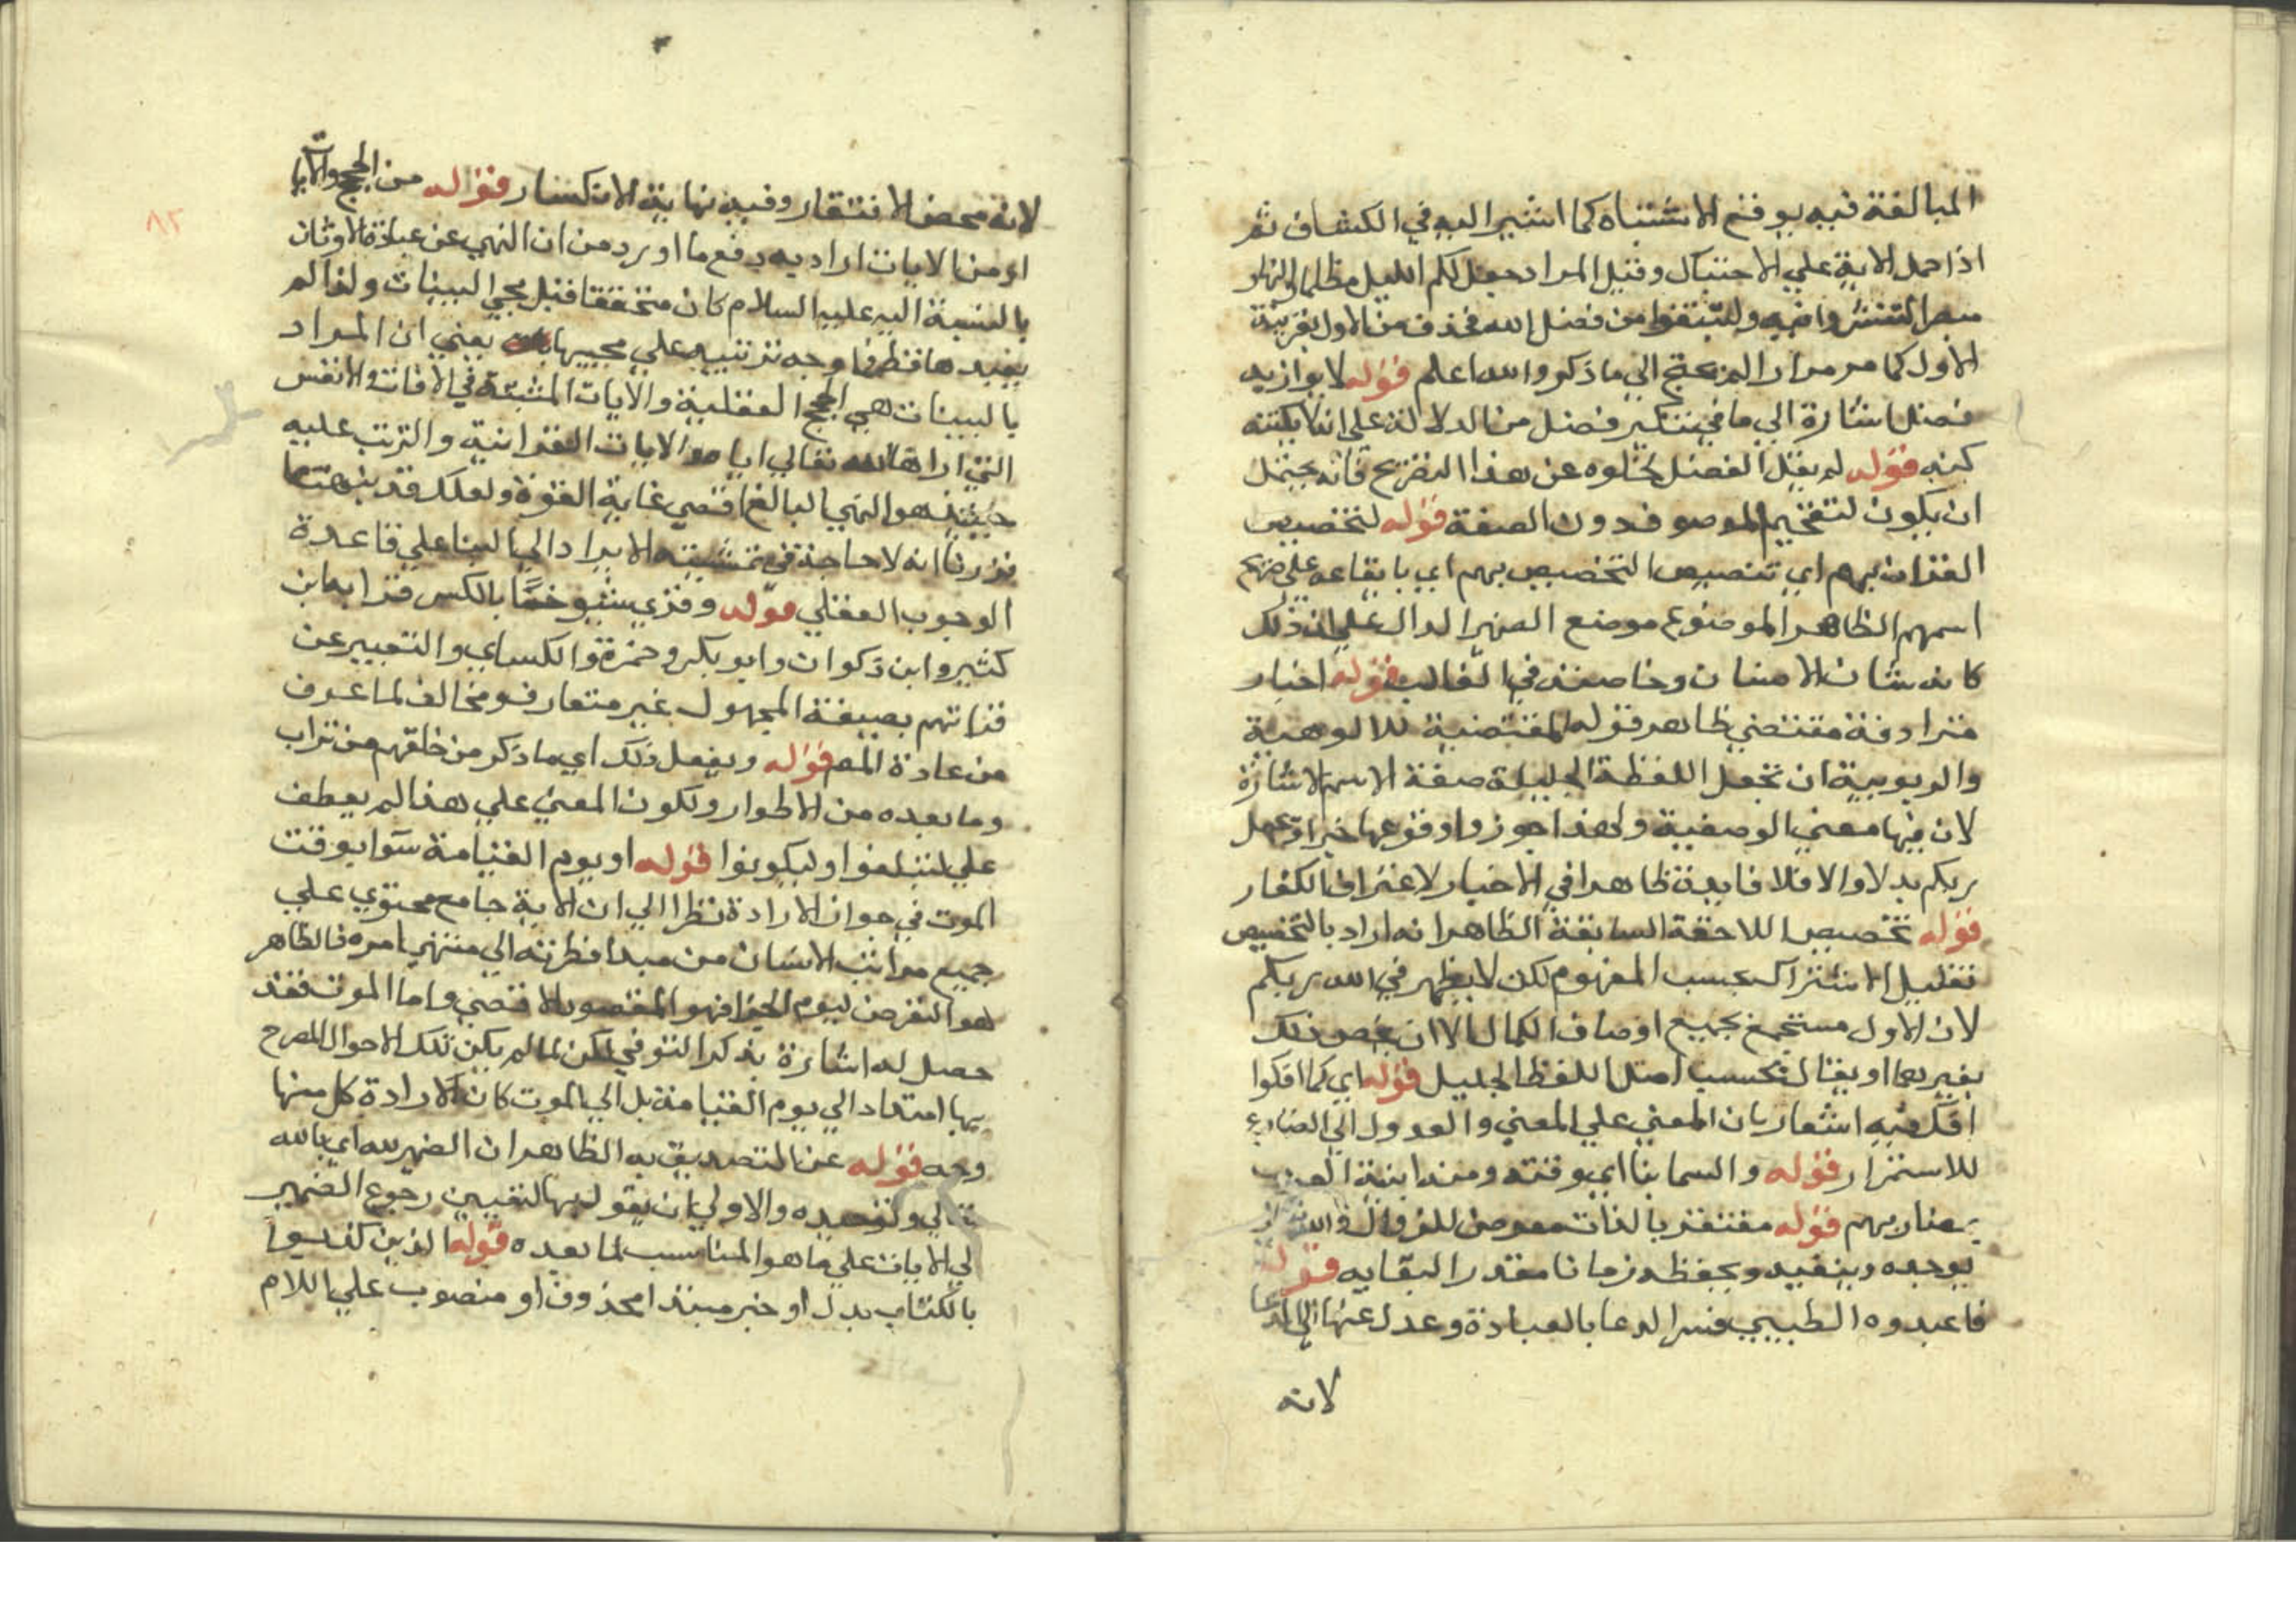 المبالغة فيه يوقع الاشتباه كما اشير اليه في الكشاف ثم
اذا حمل الاية علي الاحتباك وقيل المراد جعل لكم الليل مظلما والنهار
مبصرا لتنتشروا فيه ولتبتغوا من فضل الله فحذف من الاول بقرينة
الاول كما مر مرارا الي ما ذكر والله اعلم قوله لا يوازيه
فضل اشارة الي ما في تنكير فضل من الدلالة علي انه لا يكتنه
كنهه قوله لم يقل لمفضل لخلوه عن هذا التصريح فانه يحتمل
ان يكون لتفخيم الموصوف دون الصفة قوله لتخصيص
الكفران بهم اي تنصيص التخصيص بهم اي بايقاعه علي صريح
اسمهم الظاهر الموضوع موضع الضمير الدال علي ان ذلك
كانه شان الانسان وخاصته في الغالب قوله اخبار
مترادفة مقتضي ظاهر قوله المقتضية للالوهية
والربوبية ان تجعل اللفظة الجليلة صفة الاسم الاشارة
لان فيها معني الوصفية ولهذا جوزوا وقوعها خبرا وجعل
ربكم بدلا والا فلا فايدة ظاهرا في الاخبار لاعتراف الكفار
قوله تخصيص اللاحقة السابقة الظاهر انه اراد بالتخصيص
تقليل الاشتراك بحسب المفهوم لكن لا يظهر في الله ربكم
لان الاول مستجمع بجميع اوصاف الكمال الا ان يخص ذلك
بغيرهما او يقال بحسب اصل اللفظ الجليل قوله اي كما افكوا
افك فيه اشعار بان المعني علي المعني والعدول الي المضارع
للاستمرار قوله والسما بنا اي وقتة ومنه ابنية العرب
لمضاربهم قوله مفتقر بالذات معرض للزوال
يوجده ويبقيه ويحفظه زمانا مقدرا لبقايه قوله
فاعبدوه الطيبي فسر الدعا بالعبادة وعدل عنها الي الدعا
لانه
٨٢
لانه محض الافتقار وفيه نهاية الانكسار قوله من الحجج والايات
او من الايات اراد به دفع ما اورد من ان النهي عن عبادة الاوثان
بالنسبة اليه عليه السلام كان متحققا قبل مجي البينات ولذا لم
يعبدها قط فما وجه ترتيبه علي مجييها يعني ان المراد
بالبينات هي الحجج العقلية والايات المثبتة في الافاق والانفس
التي اراها الله تعالي اياه والايات القرانية والترتب عليه
حينئذ هو النهي البالغ اقصي غاية القوة ولعلك قد تنبهت مما
قررنا انه لا حاجة في تمشيته الايراد الي البنا علي قاعدة
الوجوب العقلي قوله وقري شيوخًا بالكسر قرا بها ابن
كثير وابن ذكوان وابو بكر وحمزة والكساي والتعبير عن
قراتهم بصيغة المجهول غير متعارف ومخالف لما عرف
من عادة المص قوله ويفعل ذلك اي ما ذكر من خلقهم من تراب
وما بعده من الاطوار ولكون المعني علي هذا لم يعطف
علي لتبلغوا ولتكونوا قوله او يوم القيامة سوا بوقت
الموت في جواز الارادة نظرا الي ان الاية جامع محتوي علي
جميع مراتب الانسان من مبدا فطرته الي منتهي امره فالظاهر
هو التعرض ليوم الجزا فهو المقصود الاقصي واما الموت فقد
حصل له اشارة بذكر التوفي لكن لما لم يكن تلك الاحوال المصرح
بها امتداد الي يوم القيامة بل الي الموت كان لارادة كل منها
وجه قوله عن التصديق به الظاهر ان الضمير لله اي بالله
تعالي وتوحيده والاولي ان يقول بها لتعيين رجوع الضمير
الي الايات علي ما هو المناسب لما بعده قوله الذين كذبوا
بالكتاب بدل او خبر مبتدا محذوف او منصوب علي اللام